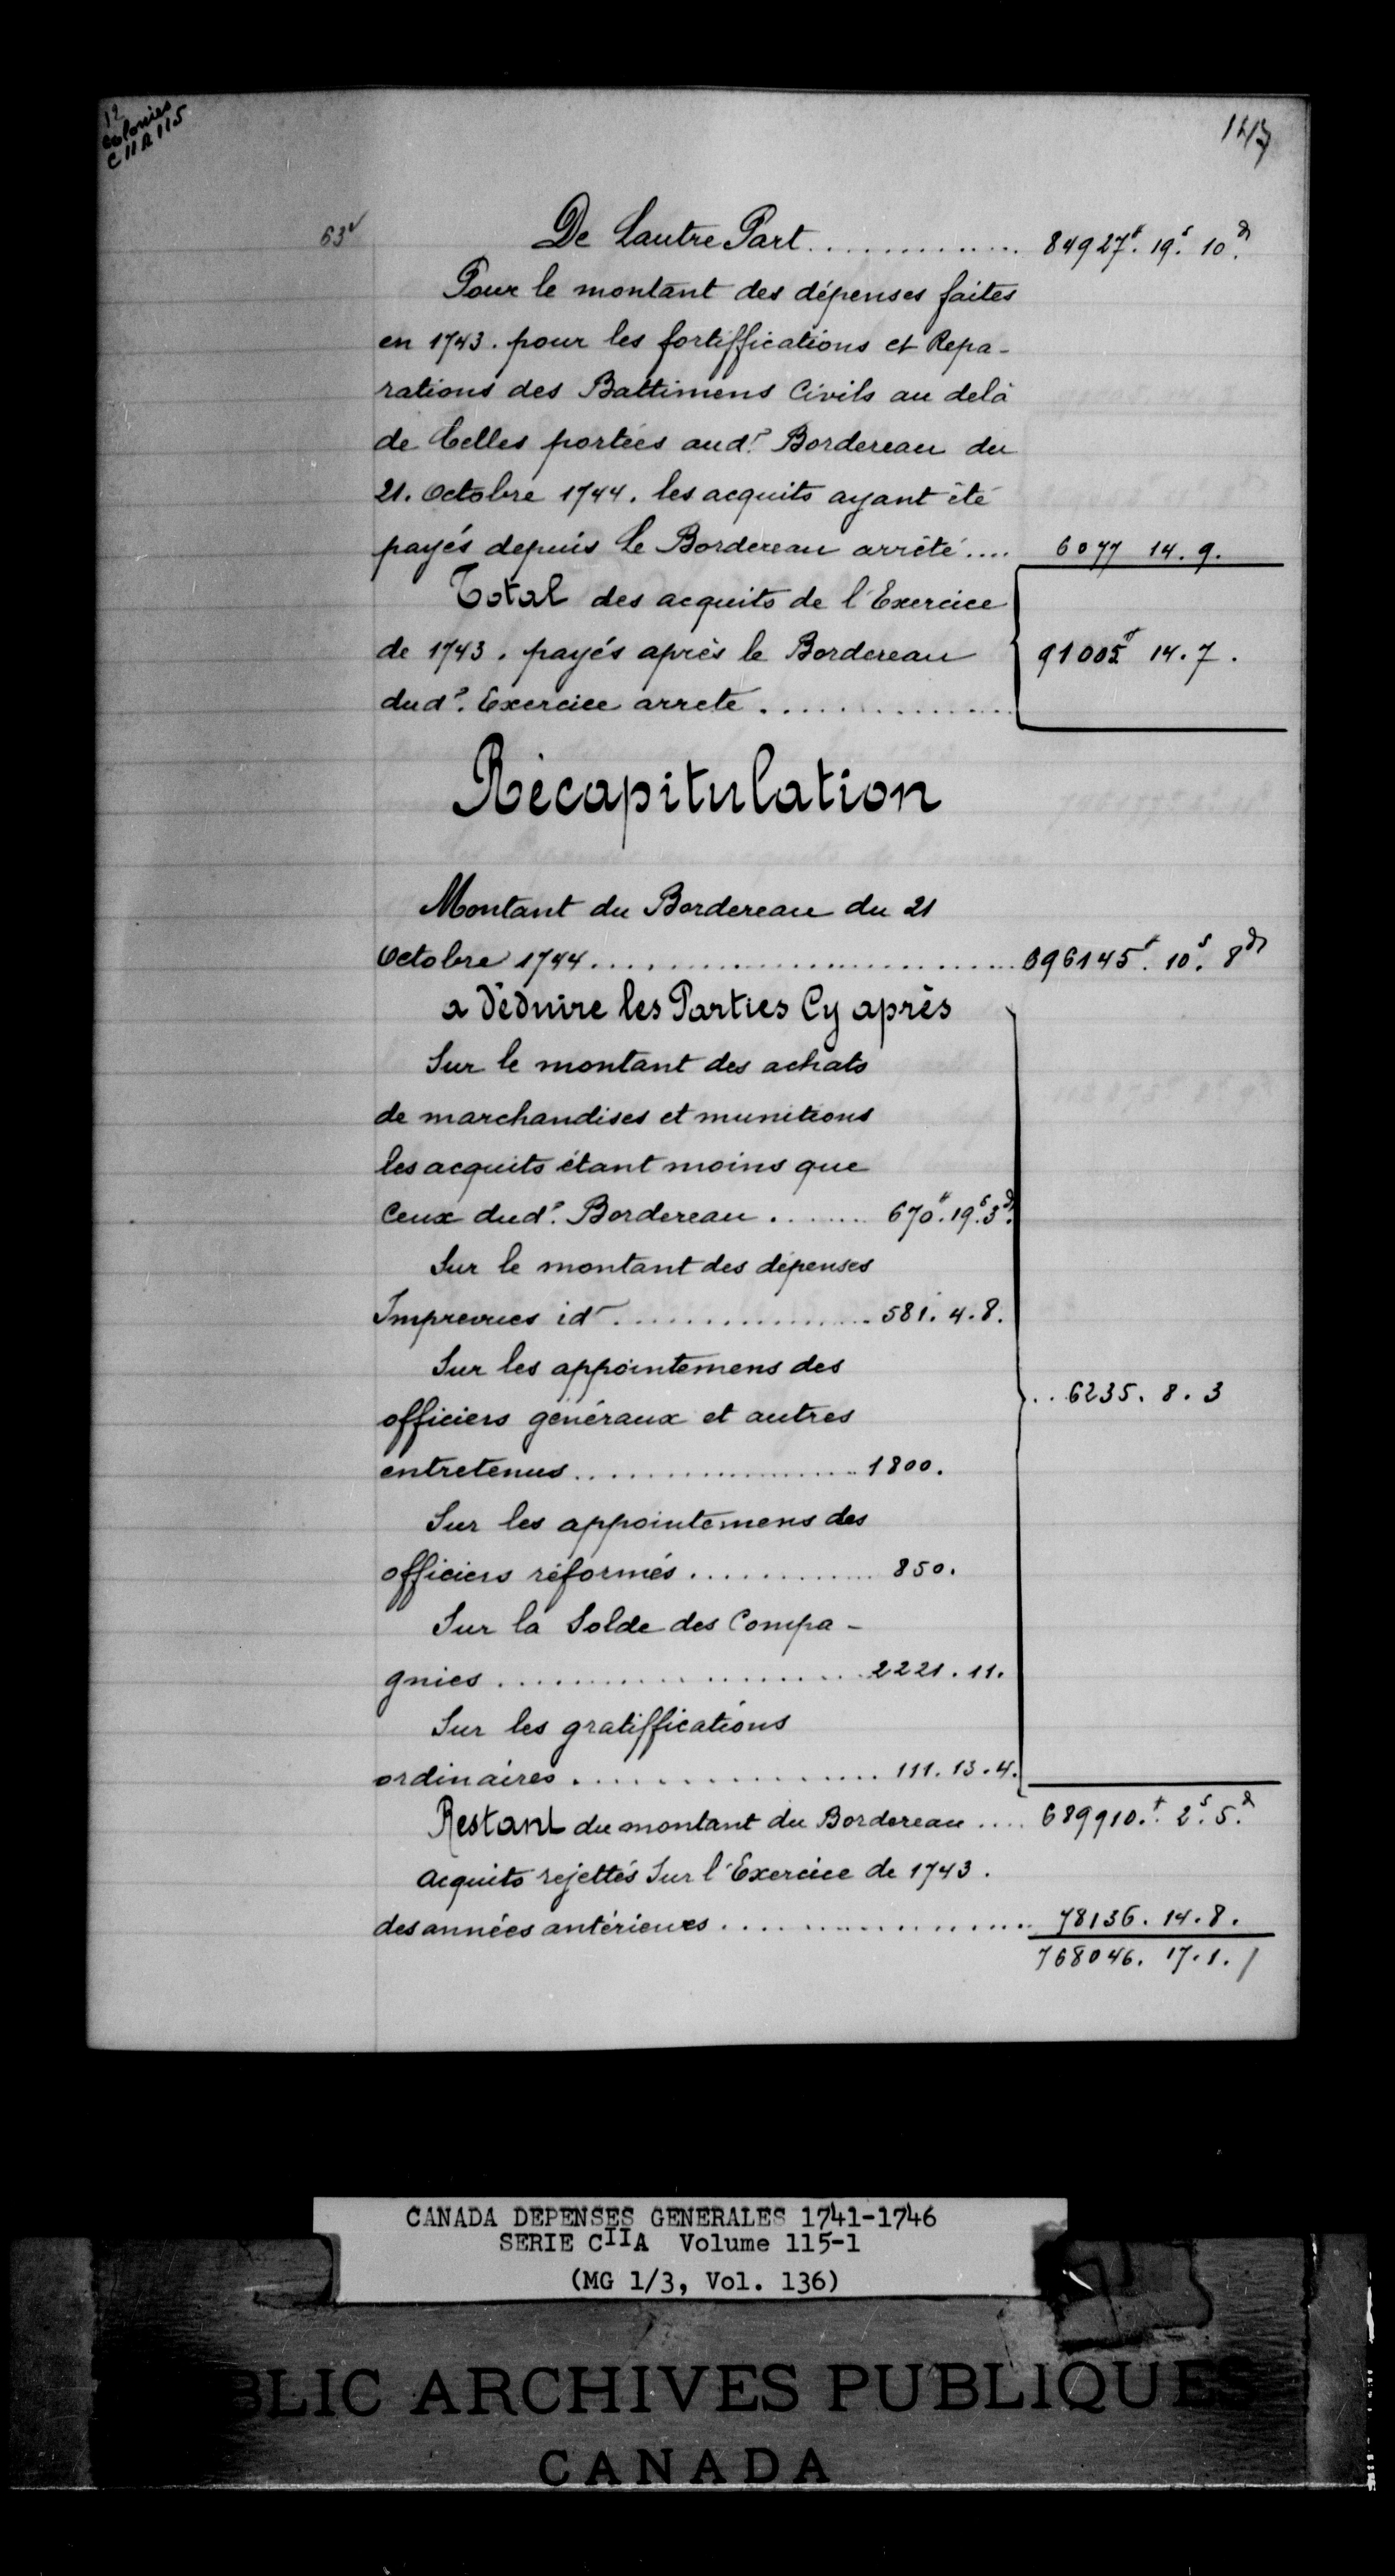 12
Colonies
C 11 A 115
147
63v
De Lautre Part.............. 84927#. 19s. 10d.
Pour le montant des dépenses faites
en 1743. pour les fortiffications et Repa-
rations des Battimens Civils au delà
de Celles portées aud?. Bordereau du
21. Octobre 1744. les acquits ayant été
payés depuis le Bordereau arrêté.... 6077 14. 9.
Total des acquits de l'Exercice
de 1743. payés après le Bordereau 91005# 14. 7.
dud?. Exercice arrete................
Récapitulation
Montant du Bordereau du 21
Octobre 1744........................696145#. 10s. 8d
a Déduire les Parties Cy après
Sur le montant des achats
de marchandises et munitions
les acquits étant moins que
Ceux dud?. Bordereau........ 670#. 19s. 3d.
Sur le montant des dépenses
Imprevues id................. 581. 4. 8.
Sur les appointemens des
officiers généraux et autres ... 6235. 8. 3
entretenus.................. 1800.
Sur les appointemens des
officiers réformés............ 850.
Sur la Solde des Compa-
gnies......................2221. 11.
Sur les gratiffications
ordinaires.................. 111. 13. 4.
Restant du montant du Bordereau.... 689910#. 2s. 5d.
Acquits rejettés Sur l'Exercice de 1743.
des années antérieures................... 78136. 14. 8.
768046. 17. 1. /
CANADA DEPENSES GENERALES 1741-1746
SERIE CIIA Volume 115-1
(MG 1/3, Vol. 136)
BLIC ARCHIVES PUBLIQUES
CANADA